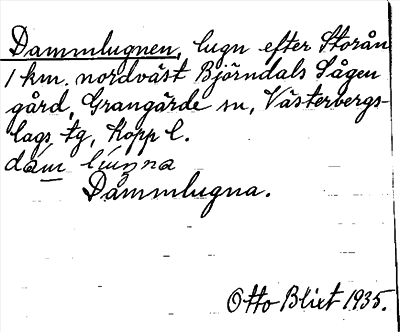 Dammlugnen, lugn efter Storån
1 km. nordväst Björndals Sågen
gård, Grangärde sn, Västerbergs-
lags tg, Kopp l.
Dammlugna.
Otto Blixt 1935.